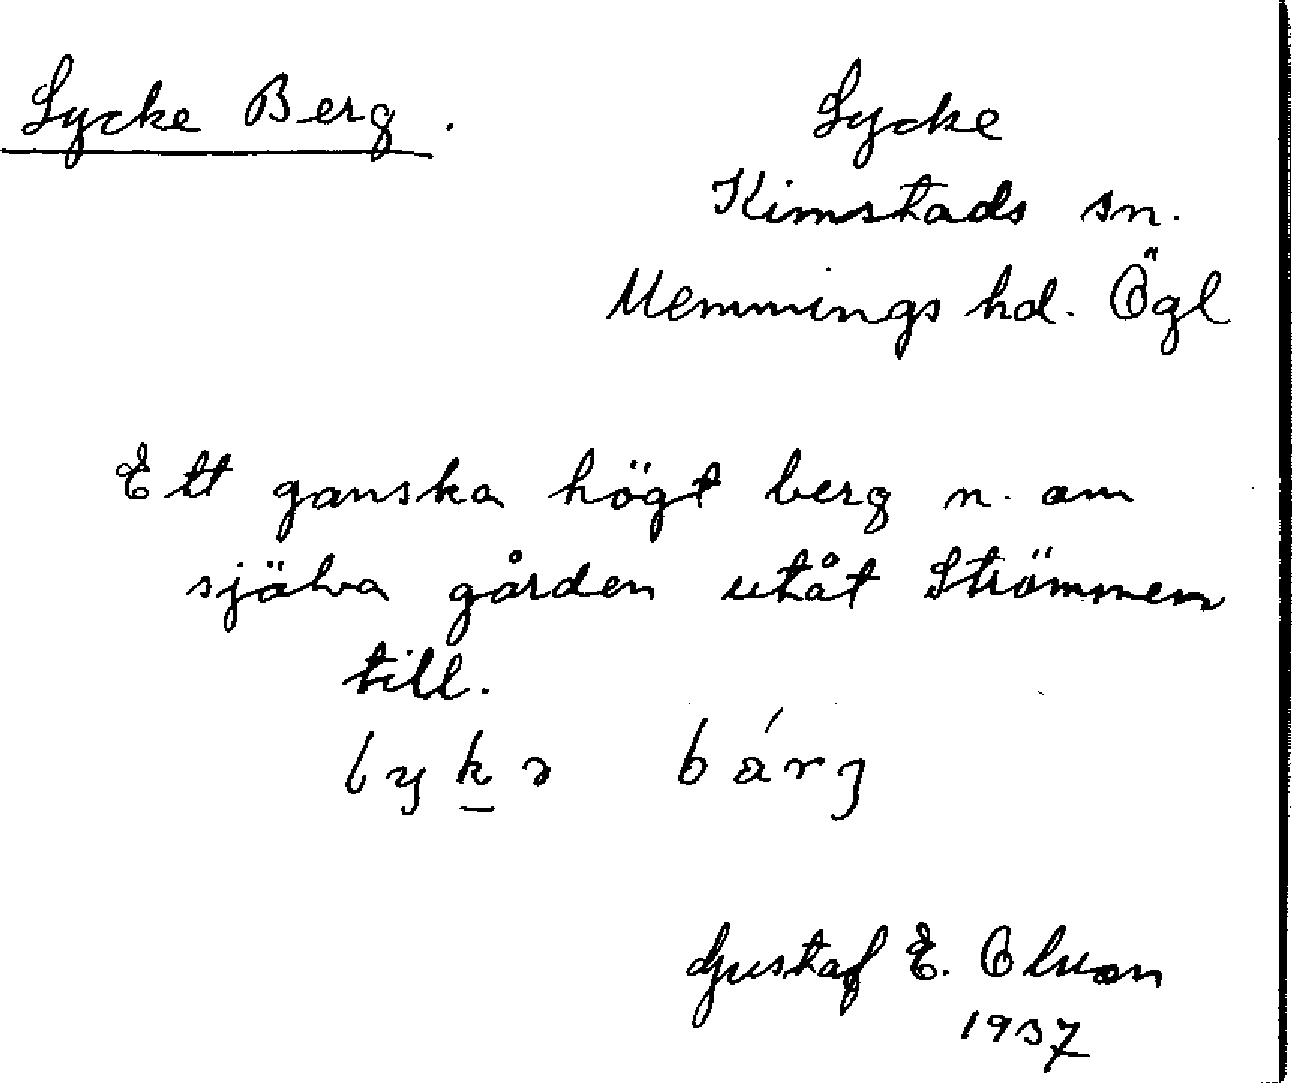 Lycke Berg.
Lycke
Kimstads sn.
Memmings hd. Ögl
Ett ganska högt berg n. om
själva gården utåt Strömmen
till.
lykə bárj
Gustaf E.
1937